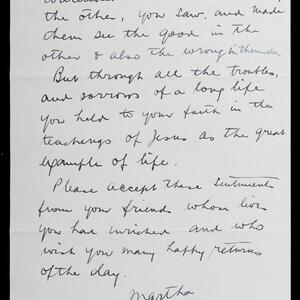 the other, you saw, and made
them see the good in the
other & also the wrong in themselves
But through all the troubles,
and sorrows of a long life
you held to your faith in the
teachings of Jesus as the great
example of life.
Please accept these sentiments
from your friends whose lives
you have enriched and who
wish you many happy returns
of the day.
Martha